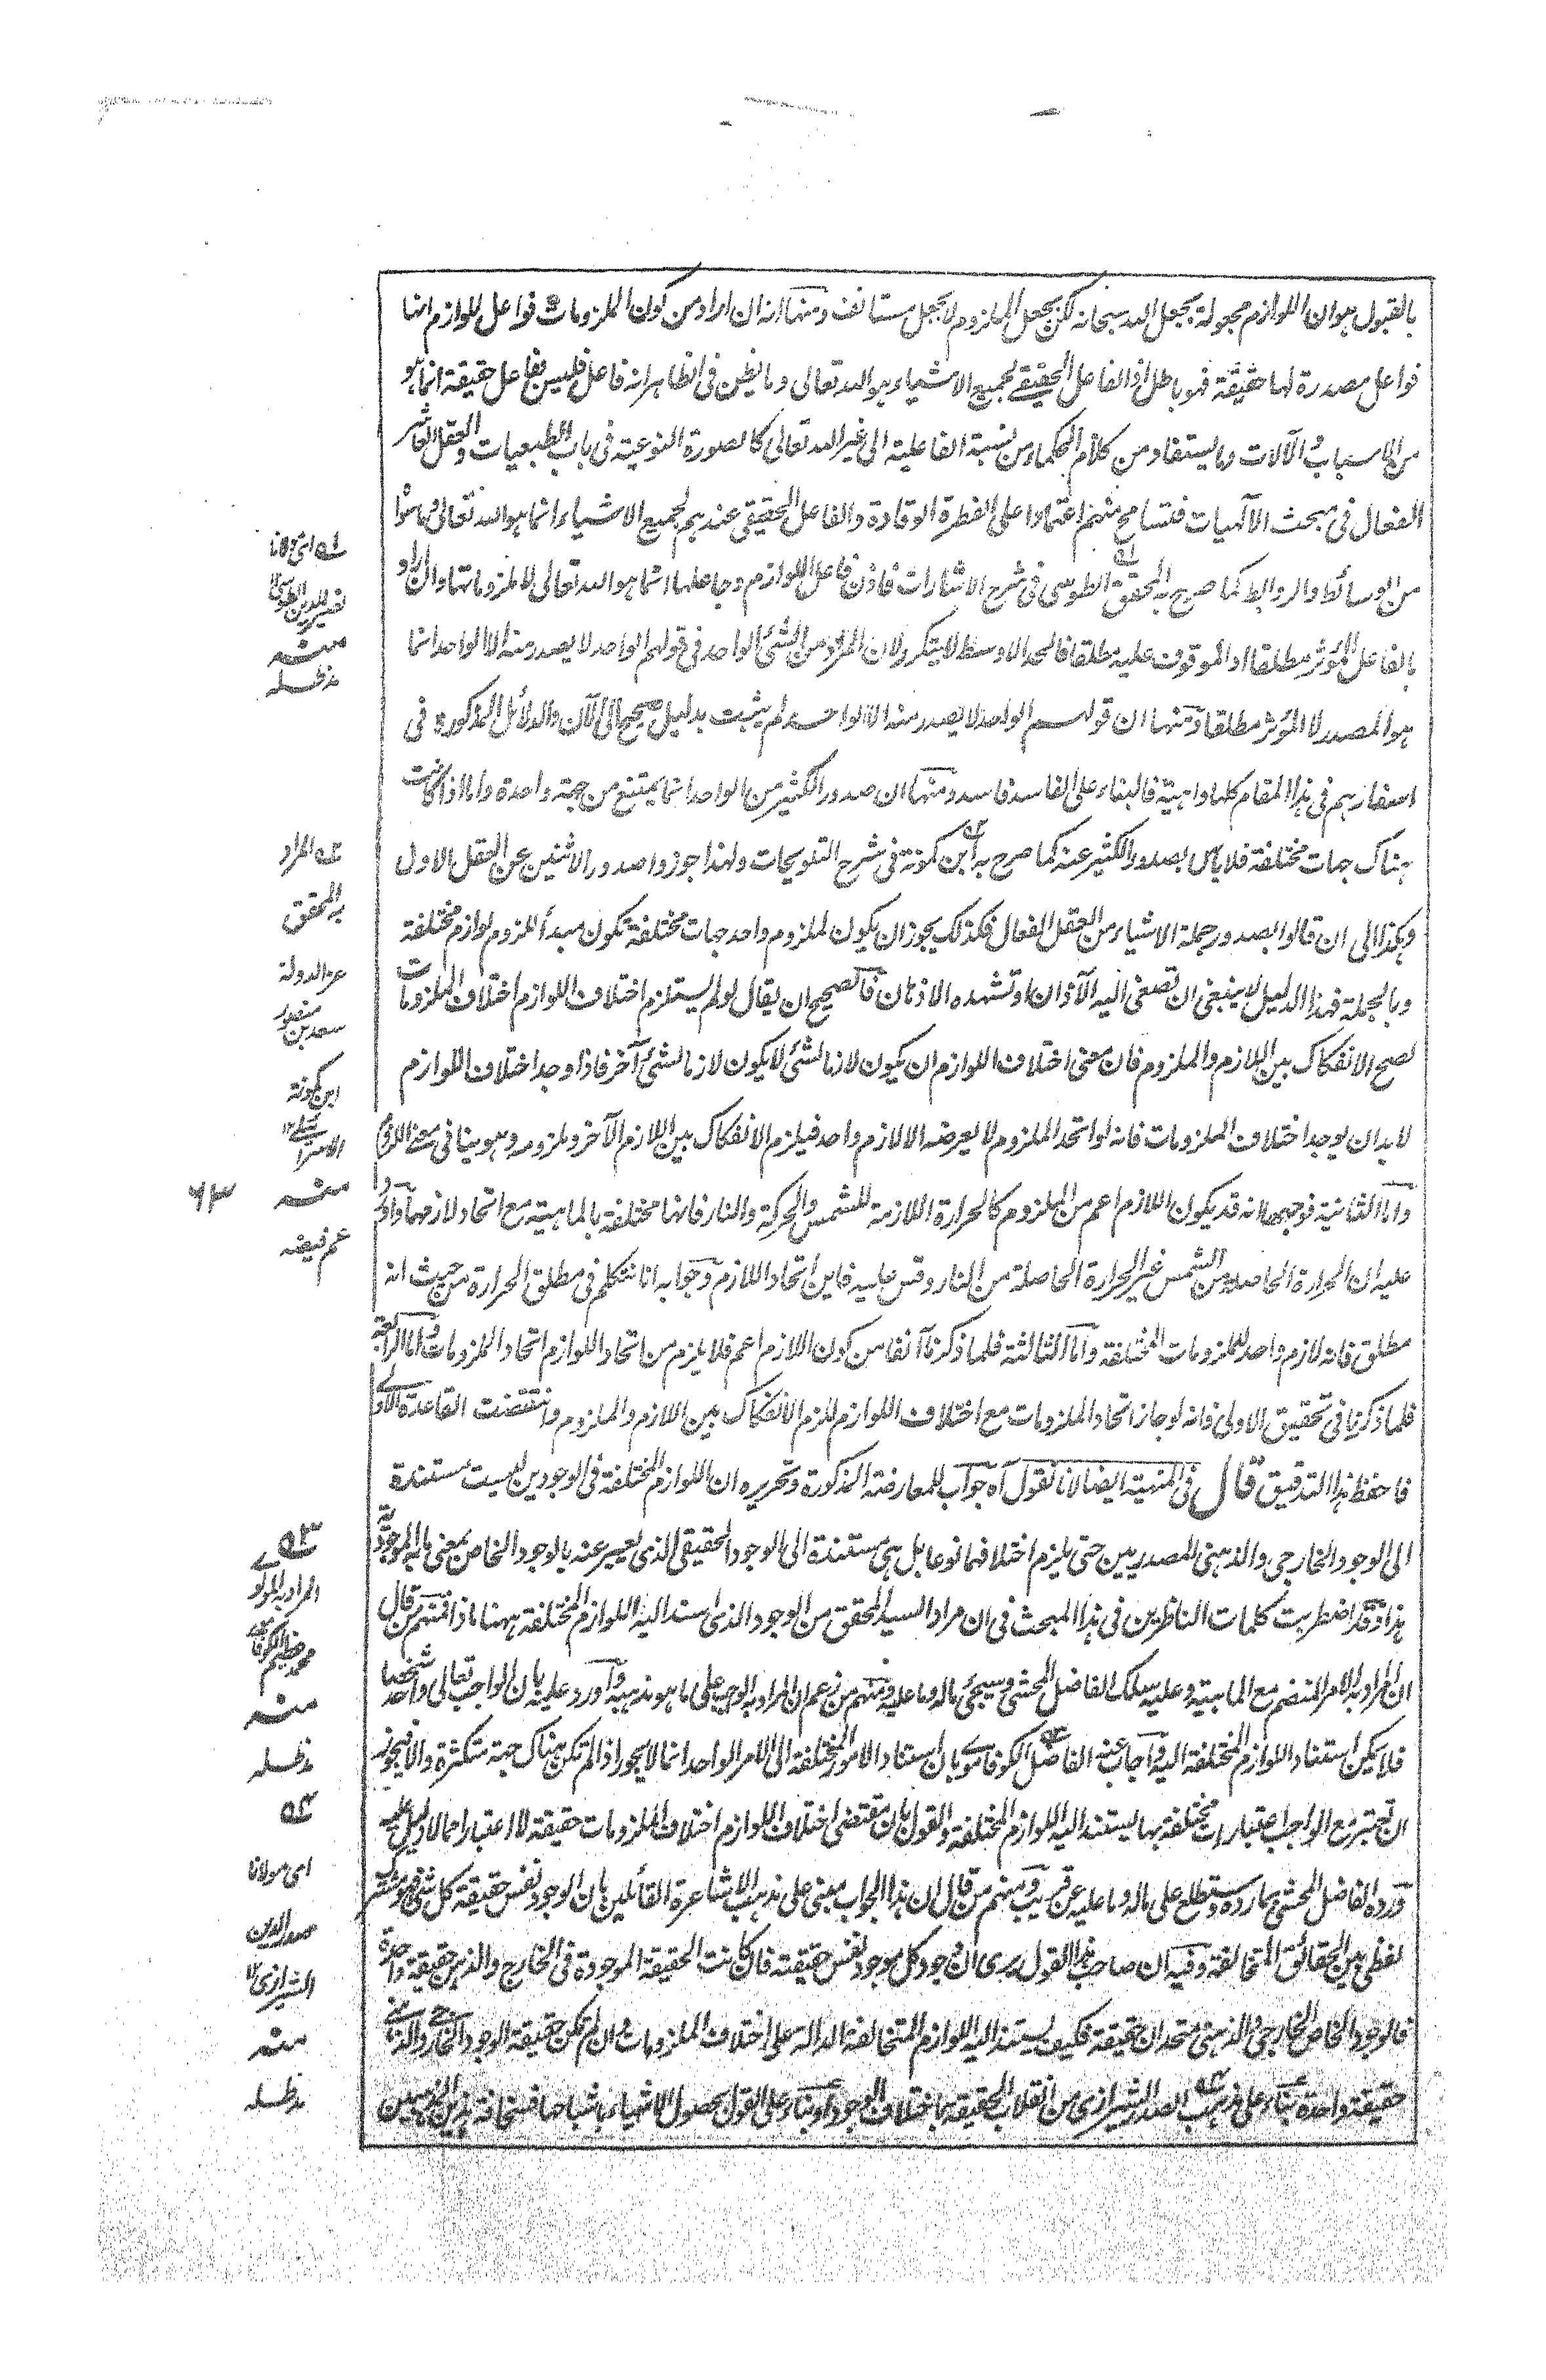 بالقبول هو ان اللوازم مجعولة بجعل الله سبحانه لكن بجعل الملزوم لا بجعل مستانف ومنها انه ان اراد من كون الملزومات فواعل للوازم انها
فواعل مصدرة لها حقيقة فهو باطل اذ الفاعل الحقيقي لجميع الاشياء هو الله تعالى وما يظن فى الظاهر انه فاعل فليس بفاعل حقيقة انما هو
من الاسباب والآلات وما يستفاد من كلام الحكماء من نسبة الفاعلية الى غير الله تعالى كالصورة النوعية فى باب الطبعيات والعقل العاشر
الفعال فى مبحث الآلهيات فتسامح منهم اعتمادا على الفطرة الوقادة والفاعل الحقيقى عندهم لجميع الاشياء انما هو الله تعالى وما سواه
من الوسائط والروابط كما صرح به المحقق الطوسى فى شرح الاشارات فاذن فاعل اللوازم وجاعلها انما هو الله تعالى لا ملزوماتها وان اراد
بالفاعل المؤثر مطلقا او الموقوف عليه مطلقا فالحد الاوسط لا يتكرر لان المراد من الشئ الواحد فى قولهم الواحد لا يصدر منه الا الواحد انما
هو المصدر لا المؤثر مطلقا ومنها ان قولهم الواحد لا يصدر منه الا الواحد لم يثبت بدليل صحيح الى الآن والدلائل المذكورة فى
اسفارهم فى هذا المقام كلها واهية فالبناء على الفاسد فاسد ومنها ان صدور الكثير من الواحد انما يمتنع من جهة واحدة واما اذا كانت
هناك جهات مختلفة فلا باس بصدور الكثير عنه كما صرح به ابن كمونة فى شرح التلويحات ولهذا جوزوا صدور الاثنين عن العقل الاول
وهكذا الى ان قالوا بصدور جملة الاشياء من العقل الفعال فكذلك يجوز ان يكون لملزوم واحد جهات مختلفة تكون مبدأ للزوم لوازم مختلفة
وبالجملة فهذا الدليل لا ينبغى ان تصغى اليه الآذان او تشهده الاذهان فالصحيح ان يقال لو لم يستلزم اختلاف اللوازم اختلاف الملزومات
لصح الانفكاك بين اللازم والملزوم فان معنى اختلاف اللوازم ان يكون لازما لشئ لا يكون لازما لشئ آخر فاذا وجد اختلاف اللوازم
لابد ان يوجد اختلاف الملزومات فانه لو اتحد الملزوم لا يعرضه الا لازم واحد فيلزم الانفكاك بين اللازم الآخر وملزومه وهو ينافى معنى اللزوم
واما الثانية فوجهها انه قد يكون اللازم اعم من الملزوم كالحرارة اللازمة للشمس والحركة والنار فانها مختلفة بالماهية مع اتحاد لازمها واورد
عليه ان الحرارة الحاصلة من الشمس غير الحرارة الحاصلة من النار وقس عليه فاين اتحاد اللازم وجوابه انا نتكلم فى مطلق الحرارة من حيث انه
مطلق فانه لازم واحد للملزومات المختلفة واما الثالثة فلما ذكرنا آنفا من كون اللازم اعم فلا يلزم من اتحاد اللوازم اتحاد الملزومات واما الرابعة
فلما ذكرنا فى تحقيق الاولى فانه لو جاز اتحاد الملزومات مع اختلاف اللوازم للزم الانفكاك بين اللازم والملزوم وانتقضت القاعدة الاولى
فاحفظ هذا التدقيق قال فى المنهية ايضا لانا نقول آه جواب للمعارضة المذكورة وتحريره ان اللوازم المختلفة فى الوجودين ليست مستندة
الى الوجود الخارجى والذهنى المصدريين حتى يلزم اختلافهما نوعا بل هى مستندة الى الوجود الحقيقى الذى يعبر عنه بالوجود الخاص بمعنى ما به الموجودية
هذا وقد اضطربت كلمات الناظرين فى هذا المبحث فى ان مراد السيد المحقق من الوجود الذى استند اليه اللوازم المختلفة ههنا ماذا فمنهم من قال
ان المراد به الامر المنضم مع الماهية وعليه سلك الفاضل المحشى وسيجئ ماله وما عليه ومنهم من زعم ان المراد به الواجب على ما هو مذهبه واورد عليه بان الواجب تعالى واحد شخصا
فلا يمكن استناد اللوازم المختلفة اليه واجاب عنه الفاضل الكوفاموى بان استناد الامور المختلفة الى الامر الواحد انما لا يجوز اذا لم تكن هناك جهة متكثرة والا فيجوز
ان تعتبر مع الواجب اعتبارات مختلفة بها يستند اليه اللوازم المختلفة والقول بان مقتضى اختلاف اللوازم اختلاف الملزومات حقيقة لا اعتبارا مما لا دليل عليه
ورده الفاضل المحشى بما رده وستطلع على ماله وما عليه عن قريب ومنهم من قال ان هذا الجواب مبنى على مذهب الاشاعرة القائلين بان الوجود نفس حقيقة كل شئ فهو مشترك
لفظى بين الحقائق المتخالفة وفيه ان صاحب هذا القول يرى ان وجود كل موجود نفس حقيقته فان كانت الحقيقة الموجودة فى الخارج والذهن حقيقة واحدة
فالوجود الخاص الخارجى والذهنى متحدان حقيقة فكيف يستند اليه اللوازم المتخالفة الدالة على اختلاف الملزومات وان لم تكن حقيقة الوجود الخارجى والذهنى
حقيقة واحدة بناء على مذهب الصدر الشيرازى من انقلاب الحقيقة باختلاف الوجود او بناء على القول بحصول الاشياء باشباحها فسخافة هذين المذهبين
ل٥ اى مولانا
نصير الدين الطوسى
منه
مدظله
٥٢ المراد
به المحقق
عز الدولة
سعد بن منصور
ابن كمونة
الاسرائيلى ١٢
منه
عم فيضه
٦٣
٥٣
المراد به المولوى
محمد عظيم الكوفاموى
منه
مدظله
٥٤
اى مولانا
صدر الدين
الشيرازى ١٢
منه
مدظله